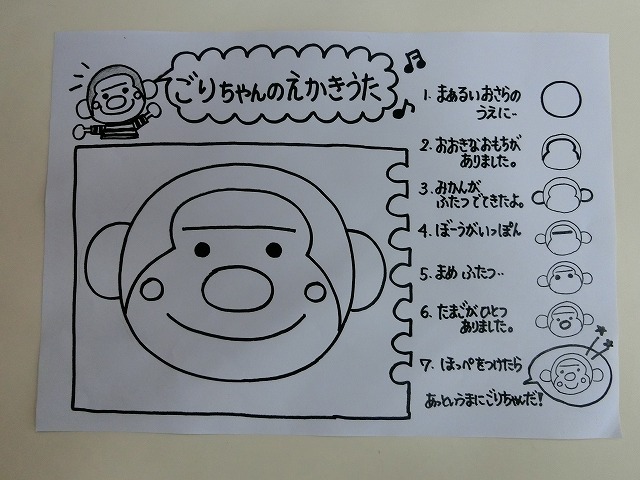 ごりちゃんのえかきうた
1. まぁるいおさらの
うえに‥
2. おおきなおもちが
ありました。
3. みかんが
ふたつでてきたよ。
4. ぼーうがいっぽん
5. まめ ふたつ‥
6. たまごがひとつ
ありました。
7. ほっぺをつけたら
あっというまにごりちゃんだ!